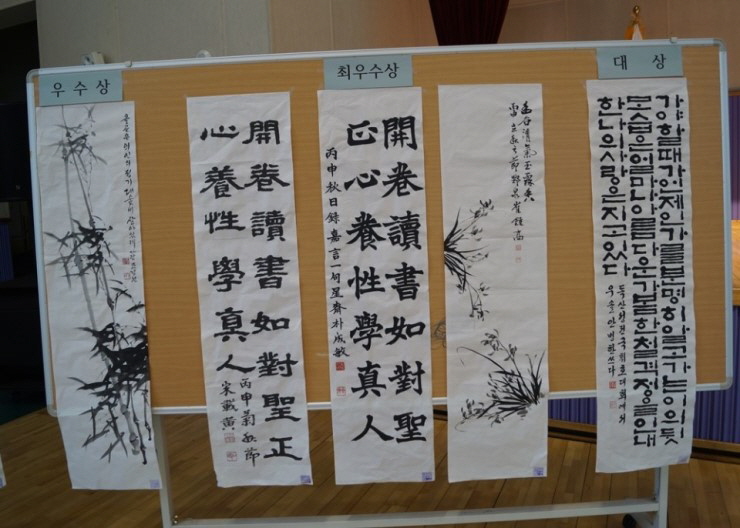 우수상
최우수상
대상
開卷讀書如對聖正
心養性學真人
丙申菊秋節
開卷讀書如對聖
正心養性學真人
丙申秋日錄嘉言一句星齋朴成敏
幽谷清氣玉露香
가야할때가언제인가를분명히알고가는이의뒷
모습은얼마나아름다운가봄한철격정을인내
한나의사랑은지고있다
휘호대회에서
쓰다